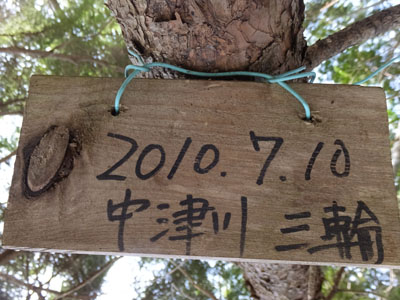 2010.7.10
中津川 三輪